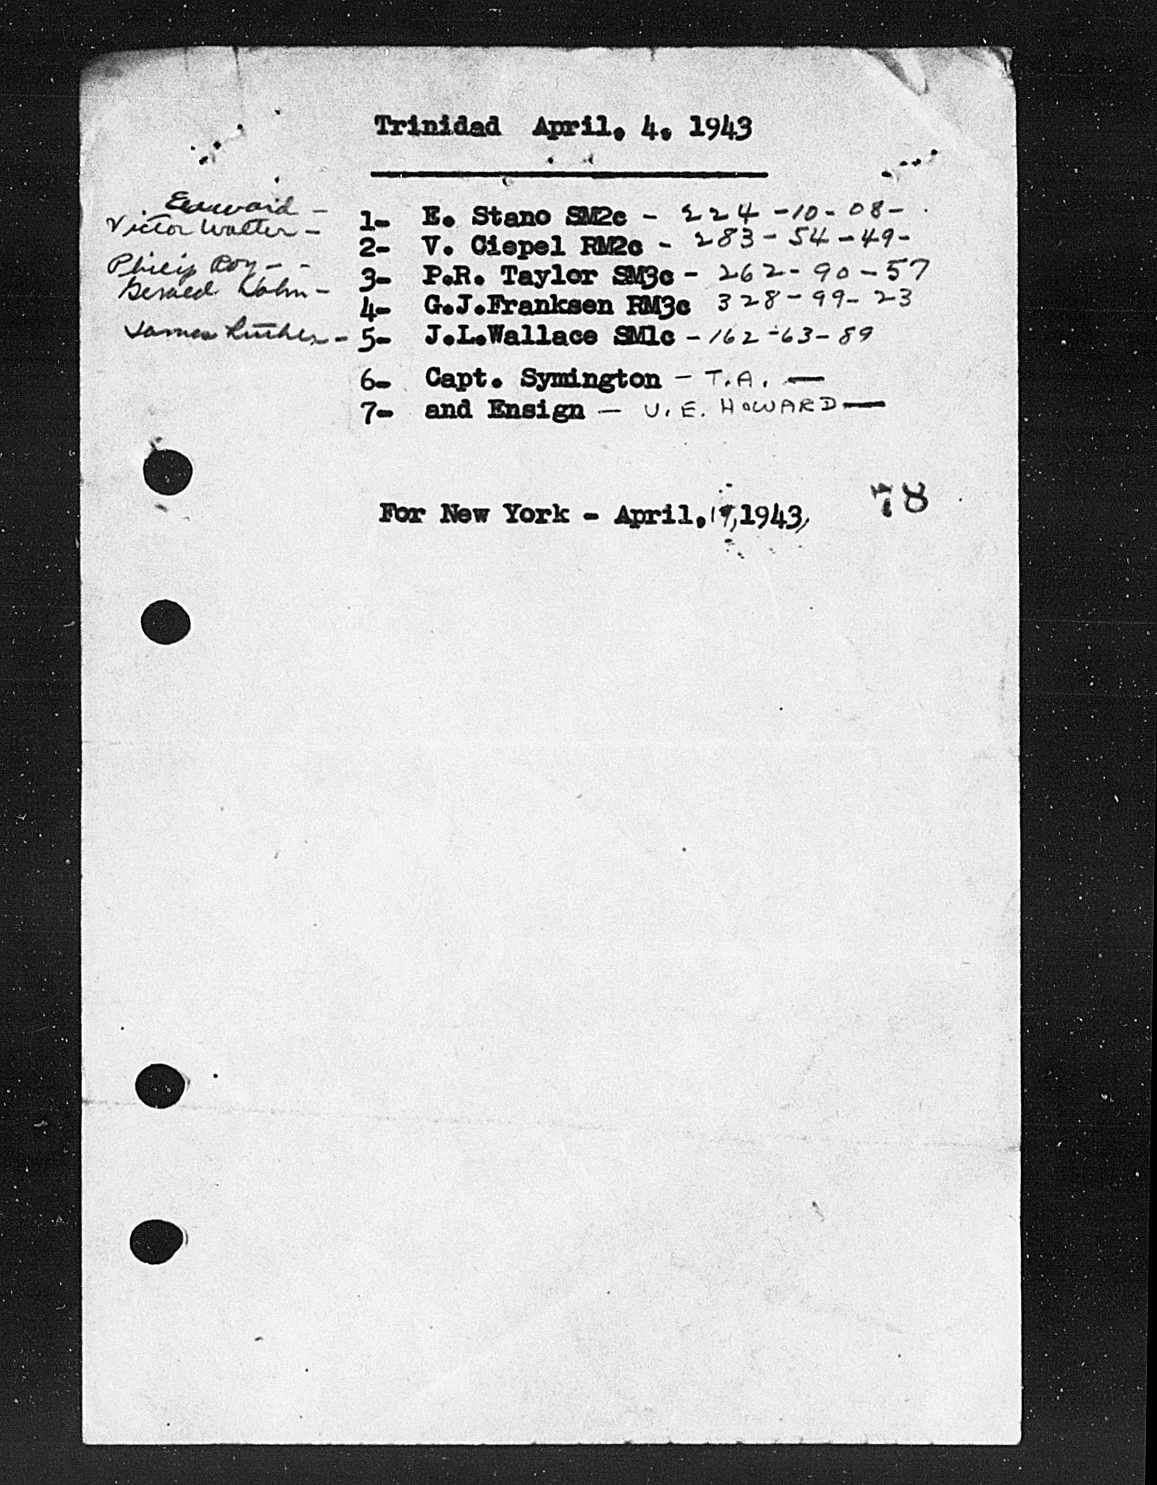 Trinidad April. 4. 1943
Edward - 1- E. Stano SM2c - 224-10-08-
Victor Walter - 2- V. Ciepel RM2c - 283-54-49-
Philip Roy - - 3- P.R. Taylor SM3c - 262-90-57
Gerald John - 4- G.J.Franksen RM3c 328-99-23
James Luther - 5- J.L.Wallace SM1c - 162-63-89
6- Capt. Symington - T.A. -
7- and Ensign - U.E. HOWARD -
For New York - April. 1943,
78